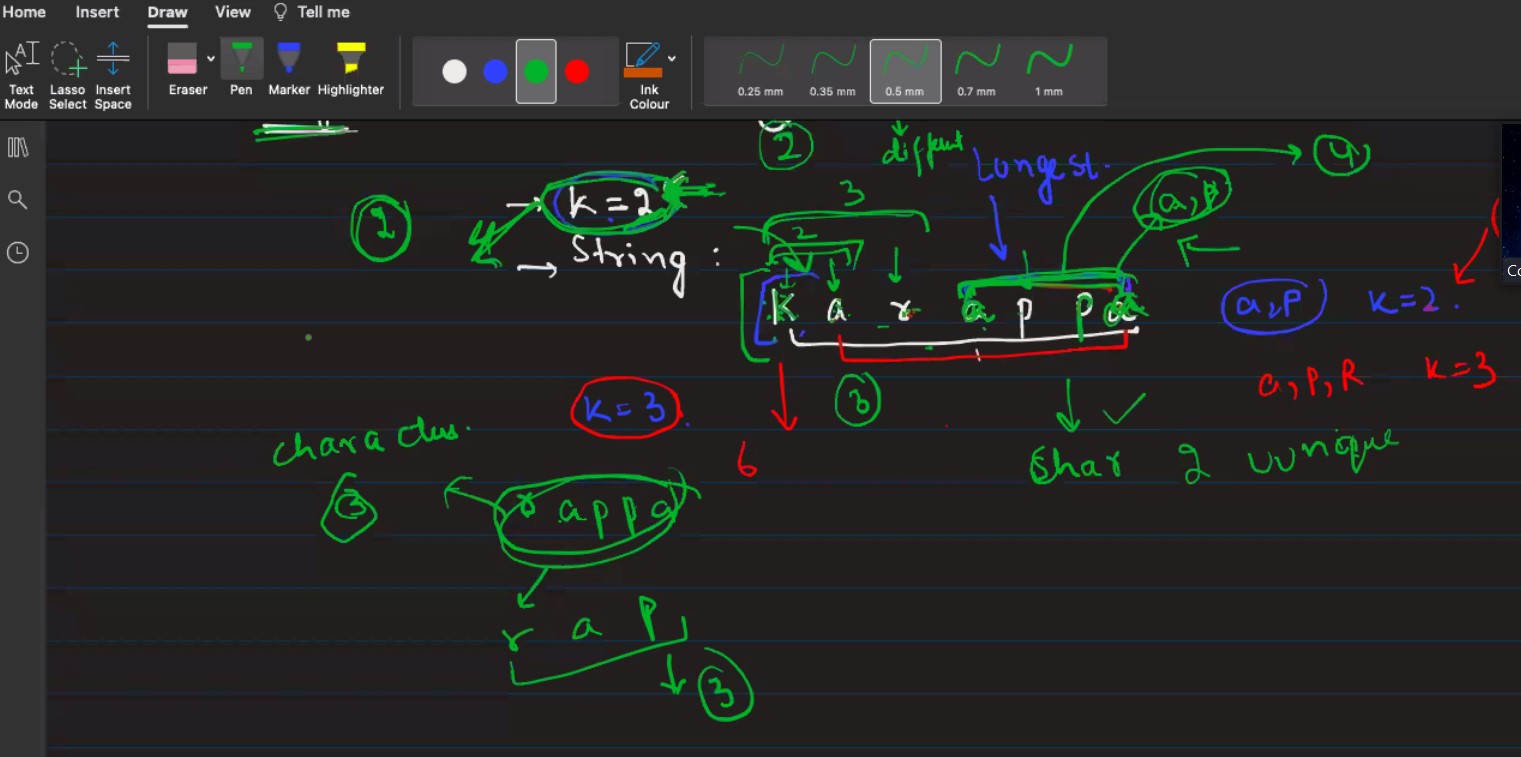 Home Insert Draw View Tell me
Text Mode Lasso Select Insert Space Eraser Pen Marker Highlighter Ink Colour 0.25 mm 0.35 mm 0.5 mm 0.7 mm 1 mm
2 different Longest. 4
2 → k = 2 3 a, p
→ String : 2
K a r a p p a a, p k = 2.
k = 3. 3 a, P, R k = 3
6 Shar 2 uunique
3 r a p p a
r a p
3